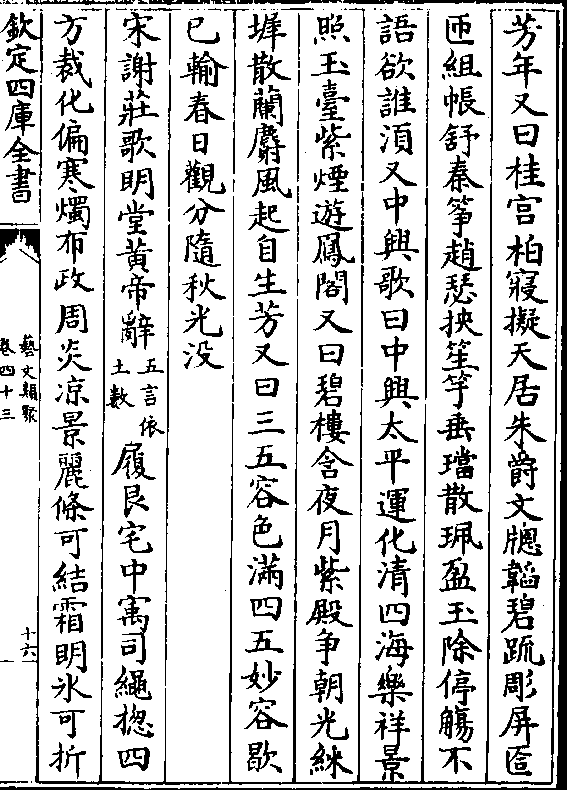 芳年又曰桂宫柏寢擬天居朱爵文牕韜碧疏彫屏匼
匝組帳舒秦筝趙瑟挾笙竽垂璫散珮盈玉除停觴不
語欲誰須又中興歌曰中興太平運化清四海樂祥景
照玉臺紫煙遊鳳閣又曰碧樓含夜月紫殿争朝光綵
墀散蘭麝風起自生芳又曰三五容色滿四五妙容歇
已輸春日觀分隨秋光没
宋謝莊歌明堂黄帝辭五言依土數履艮宅中寓司繩揔四
方裁化偏寒燠布政周炎凉景麗條可結霜明氷可折
欽定四庫全書
藝文類聚
卷四十三
十六